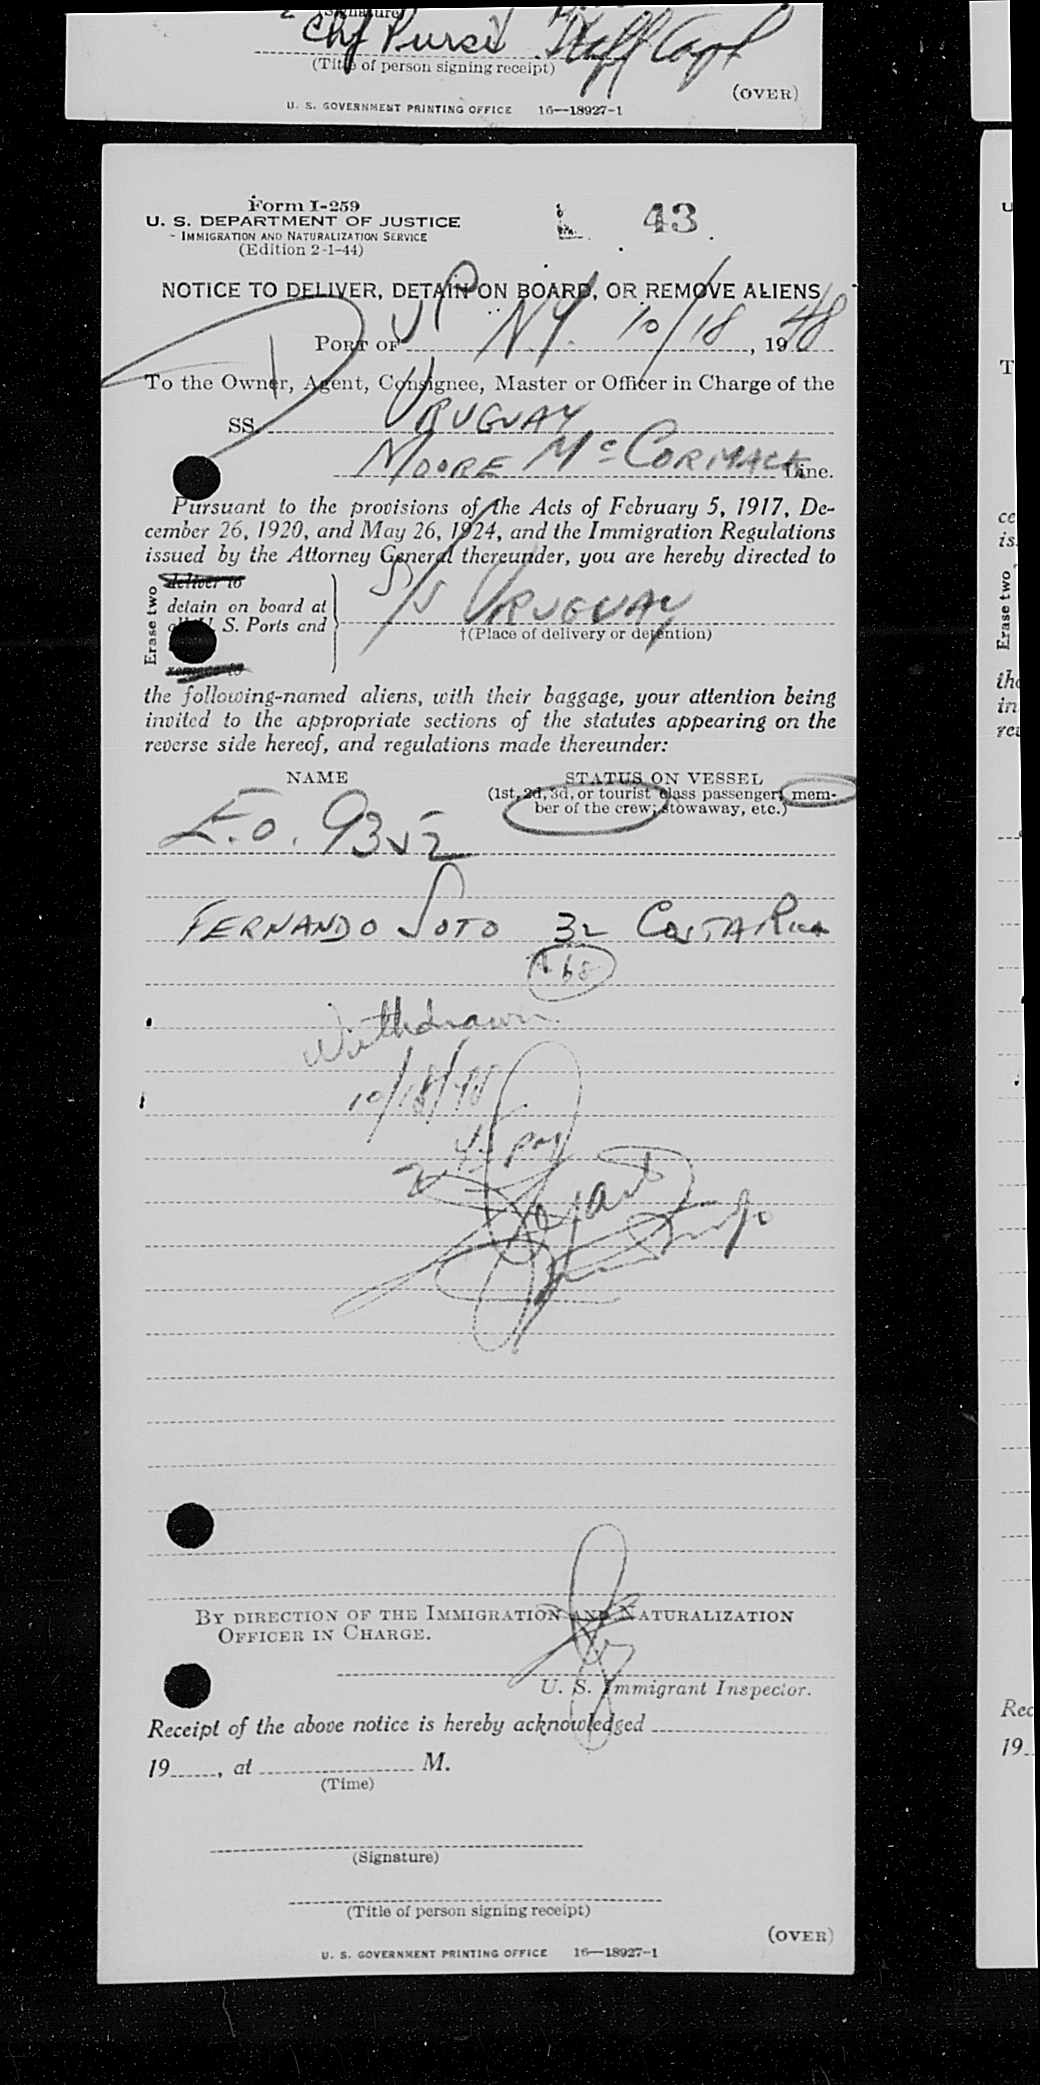 (Signature)
Chf Purser Staff Capt
(Title of person signing receipt)
(OVER)
U. S. GOVERNMENT PRINTING OFFICE 16—18927-1
Form I-259
U. S. DEPARTMENT OF JUSTICE
IMMIGRATION AND NATURALIZATION SERVICE
(Edition 2-1-44)
43
NOTICE TO DELIVER, DETAIN ON BOARD, OR REMOVE ALIENS
PORT OF N.Y. 10/18, 1948
To the Owner, Agent, Consignee, Master or Officer in Charge of the
SS. URUGUAY
MOORE McCORMACK Line.
Pursuant to the provisions of the Acts of February 5, 1917, De-
cember 26, 1920, and May 26, 1924, and the Immigration Regulations
issued by the Attorney General thereunder, you are hereby directed to
Erase two
deliver to
detain on board at
all U. S. Ports and
remove to
S/S URUGUAY
†(Place of delivery or detention)
the following-named aliens, with their baggage, your attention being
invited to the appropriate sections of the statutes appearing on the
reverse side hereof, and regulations made thereunder:
NAME STATUS ON VESSEL
(1st, 2d, 3d, or tourist class passenger; mem-
ber of the crew; stowaway, etc.)
E.O. 9352
FERNANDO SOTO 32 COSTA RICA
68
Withdrawn
10/18/48
2 45 pm
BY DIRECTION OF THE IMMIGRATION AND NATURALIZATION
OFFICER IN CHARGE.
U. S. Immigrant Inspector.
Receipt of the above notice is hereby acknowledged
19 , at M.
(Time)
(Signature)
(Title of person signing receipt)
(OVER)
U. S. GOVERNMENT PRINTING OFFICE 16—18927-1
Erase two
Rec
19